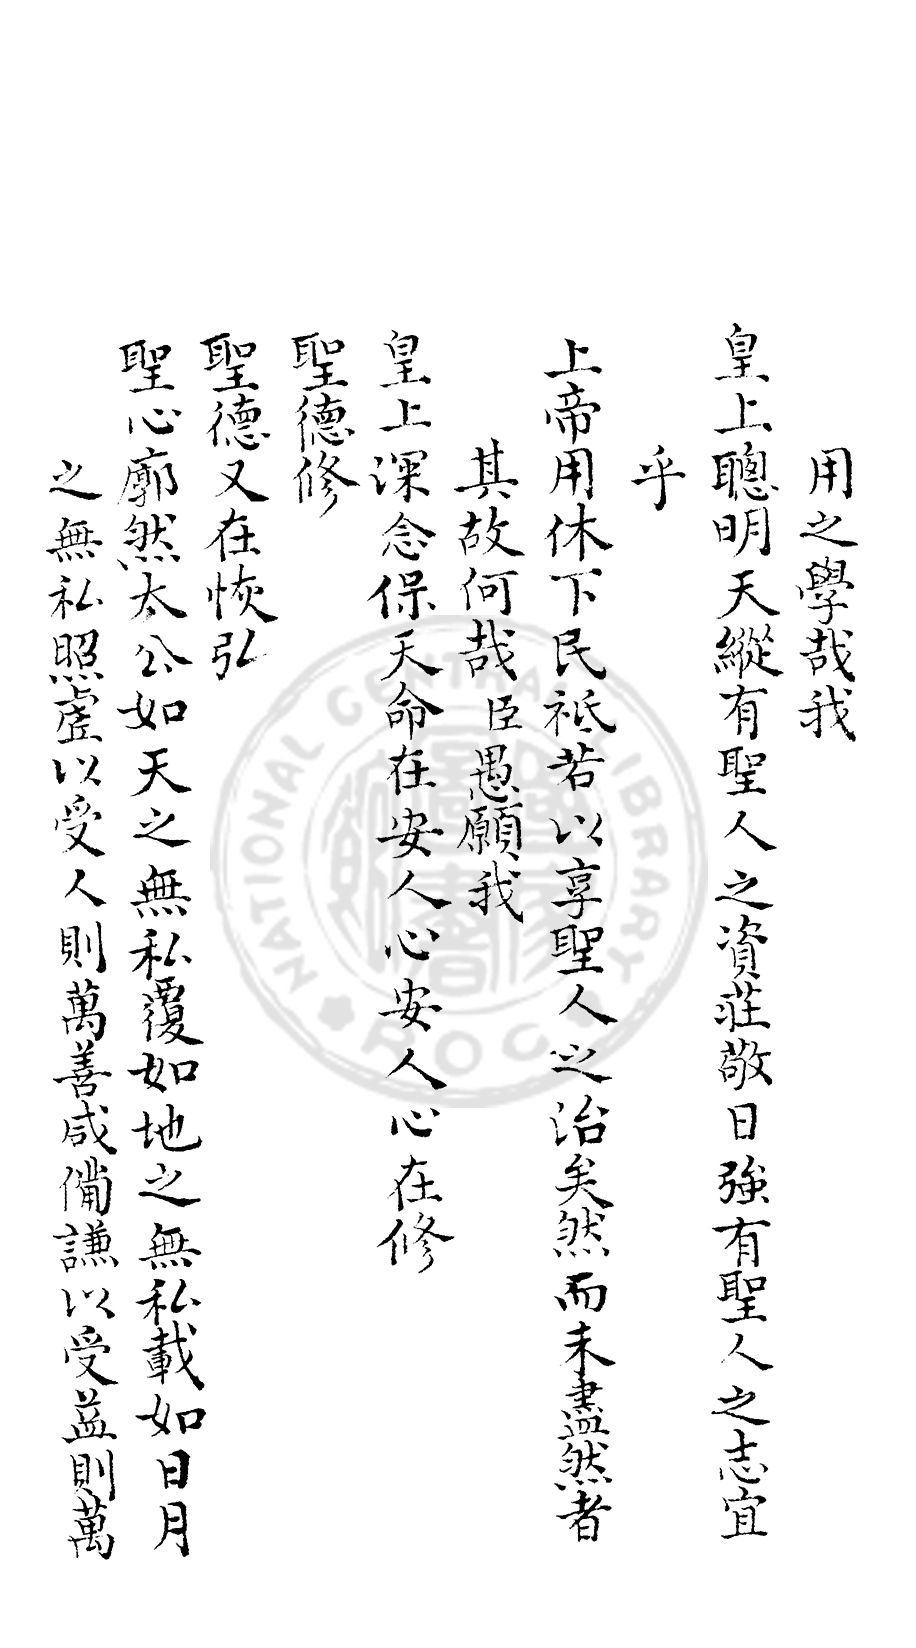 用之學哉我
皇上聰明天縱有聖人之資莊敬日強有聖人之志宜
乎
上帝用休下民祗若以享聖人之治矣然而未盡然者
其故何哉臣愚願我
皇上深念保天命在安人心安人心在修
聖德修
聖德又在恢弘
聖心廓然太公如天之無私覆如地之無私載如日月
之無私照虛以受人則萬善咸備謙以受益則萬
NATIONAL CENTRAL LIBRARY
ROC